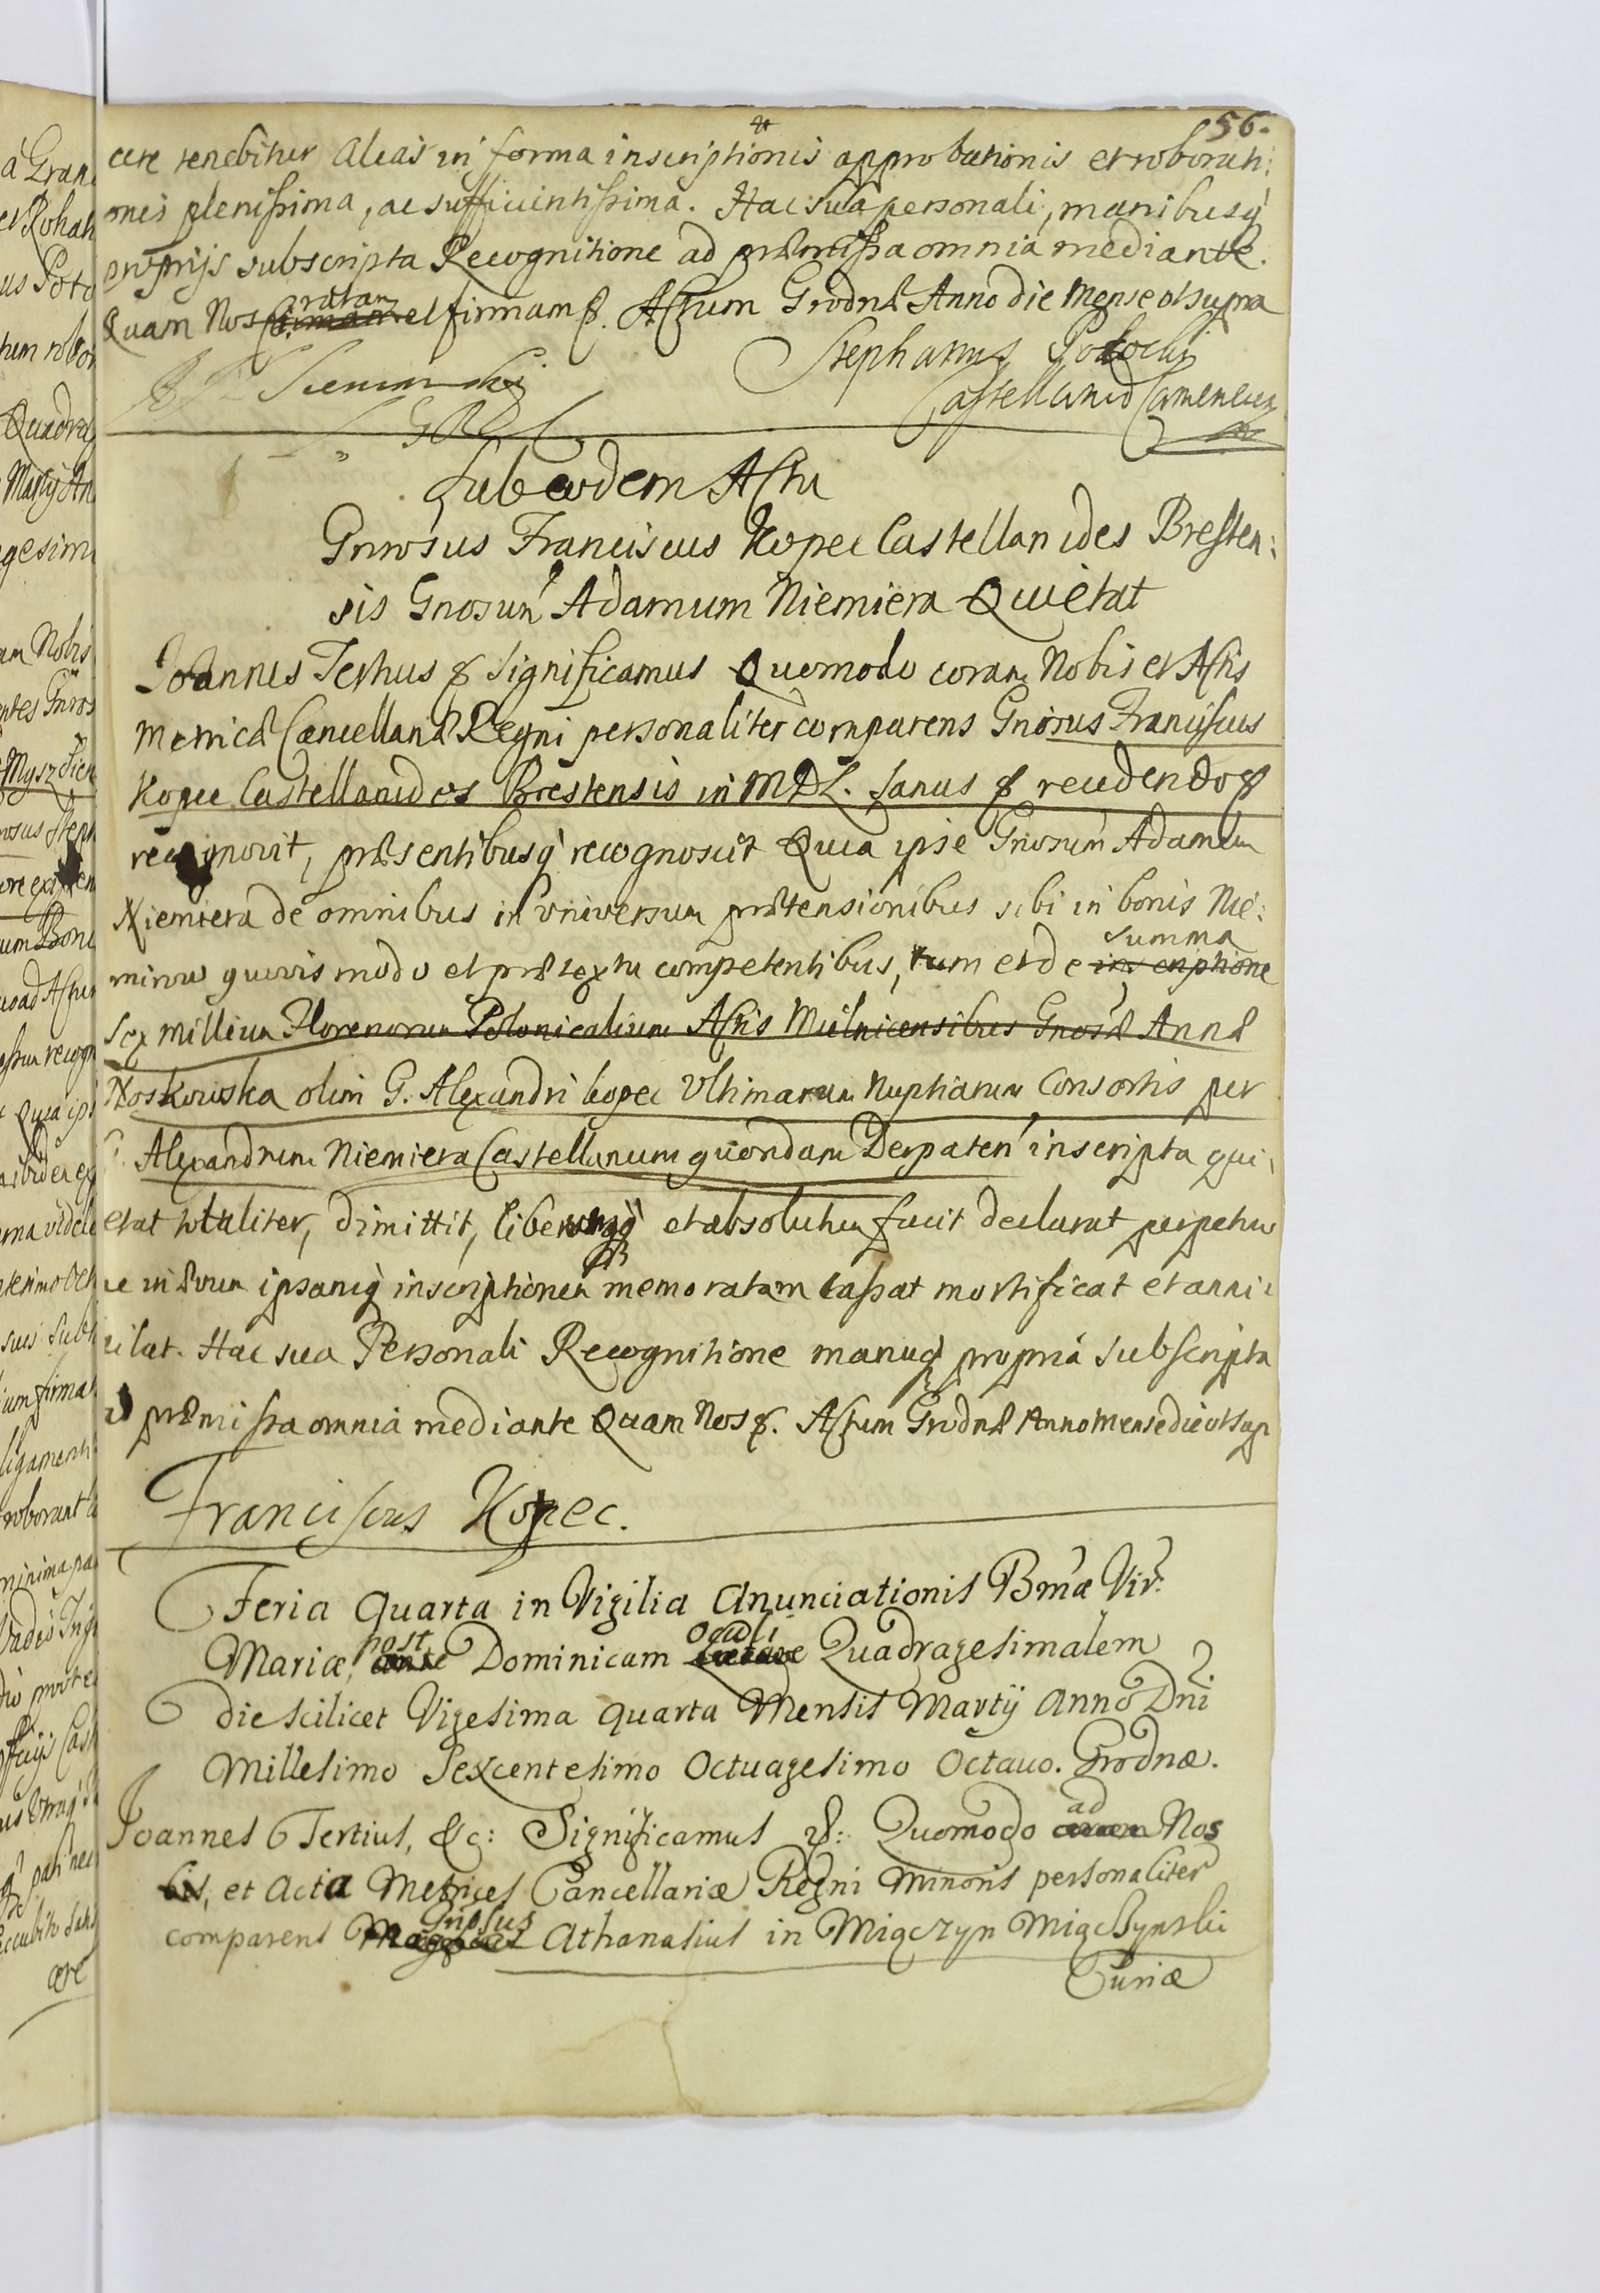 56.
cere tenebitur Aleas in forma inscriptionis approbationis et roborati:
onis plenissima, ac sufficientissima. Hac sua personali, manibusq
proprijs subscripta Recognitione ad præmissa omnia mediante.
Quam Nos ratam et firmam &. Actum Grodnæ Anno die Mense ut supra
Stephanus Potocki
Castellanid Camenecen
Sub eodem Actu
Gnrosus Franciscus Kopec Castellanides Bresten:
sis Gnosum Adamum Niemiera Quietat
Joannes Tertius & Significamus Quomodo coram Nobis et Actis
Metricæ Cancellariæ Regni personaliter comparens Gnrosus Franciscus
Kopec Castellanides Brestensis in MDL. sanus & recedendo &
recognovit, præsentibusq recognoscit Quia ipse Gnosum Adamum
Niemiera de omnibus in universum prætensionibus sibi in bonis Nie:
mirow quovis modo et prætextu competentibus, tum et de summa inscriptione
Sex millium Florenorum Polonicalium Actis Mielnicensibus Gnosæ Annæ
Noskowska olim G. Alexandri Kopec Ultimarum Nuptiarum Consortis per
G. Alexandrum Niemiera Castellanum quondam Derpaten inscripta qui:
etat totaliter, dimittit, liberumq et absolutum facit declarat perpetuo
ac in ævum ipsamq inscriptionem memoratam cassat mortificat et anni:
hilat. Hac sua Personali Recognitione manuq propria subscripta
ad præmissa omnia mediante Quam Nos &. Actum Grodnæ Anno Mense die ut sup
Franciscus Kopec.
Feria Quarta in Vigilia Anunciationis Bmæ Vir:
Mariæ, post ante Dominicam Oculi Lætare Quadragesimalem
die scilicet Vigesima quarta Mensis Martij Anno Dni
Millesimo Sexcentesimo Octuagesimo Octauo. Grodnæ.
Joannes Tertius, &c: Significamus &: Quomodo ad coram Nos
bis, et Acta Metrices Cancellariæ Regni Minoris personaliter
comparens Gnosus Athanasius in Miączyn Miączynski
Curiæ